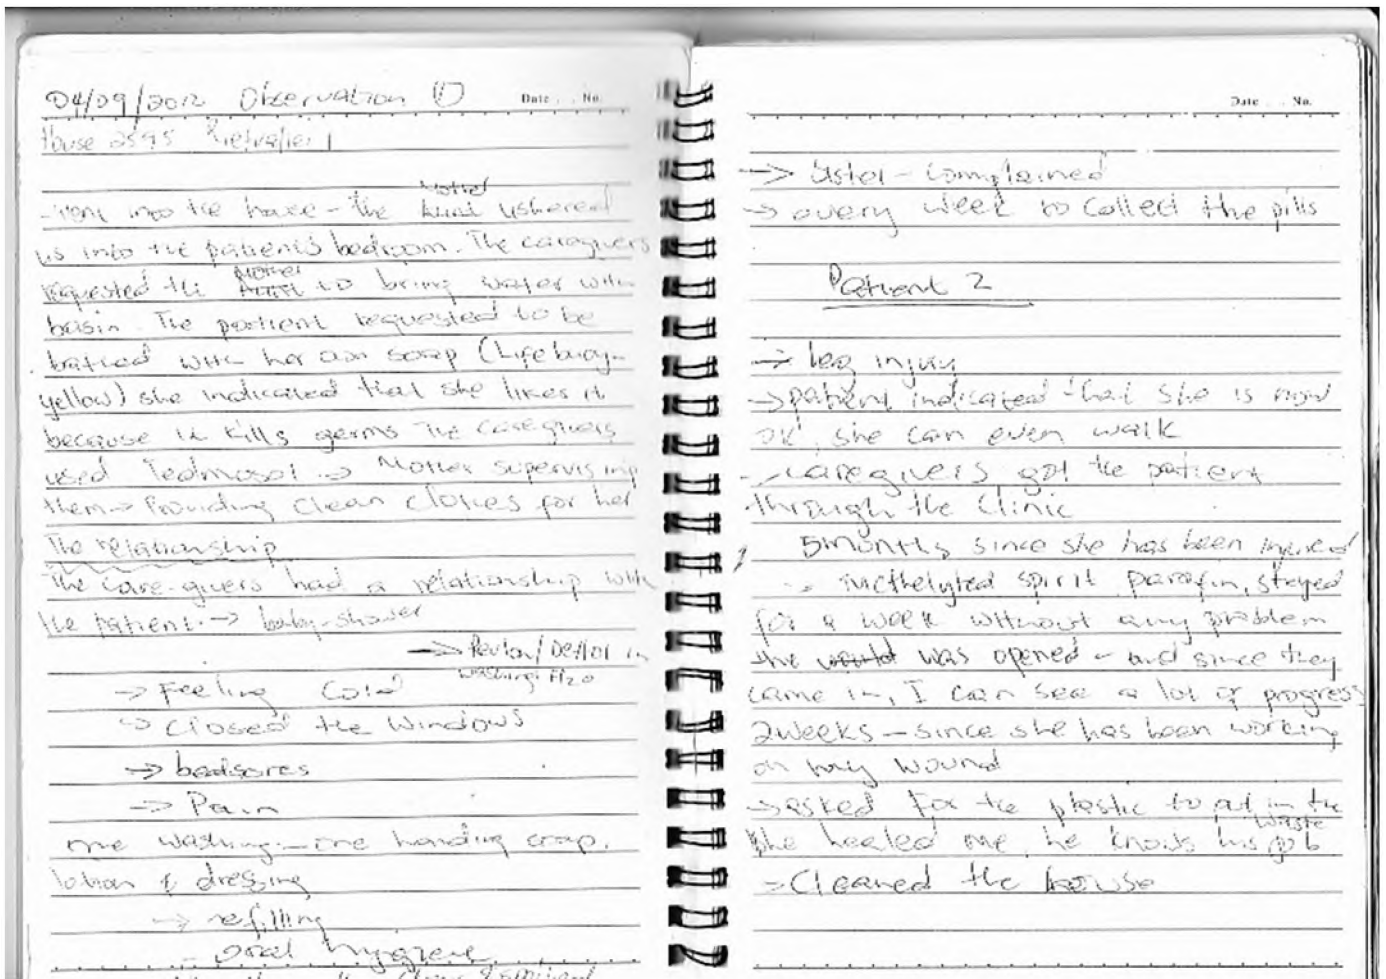 04/09/2012 Observation ①
Date . . No.
House 2595
Mother
-went into the house - the ushered
us into the patient's bedroom. The caregivers
Mother
requested the to bring water with
basin. The patient requested to be
bathed with her own soap (Lifebuoy-
yellow) she indicated that she likes it
because it kills germs The caregivers
used Tedmosol -> Mother supervising
them -> Providing clean clothes for her
The relationship
The care-givers had a relationship with
the patient. -> baby-shower
-> /Dettol in
washing H2O
-> Feeling Cold
-> closed the windows
-> bedsores
-> Pain
one washing - one handing soap,
lotion & dressing
-> refilling
- oral hygiene
Date . . No.
-> Sister - complained
-> every week to collect the pills
Patient 2
-> leg injury
-> patient indicated that she is now
OK, she can even walk
- caregivers got the patient
through the Clinic
5months since she has been injured
- methelyted spirit parafin, stayed
for a week without any problem
the was opened - and since they
came in, I can see a lot of progress
2weeks - since she has been working
on my wound
-> asked for the plastic to put in the
waste
he healed me, he knows his job
-> Cleaned the house